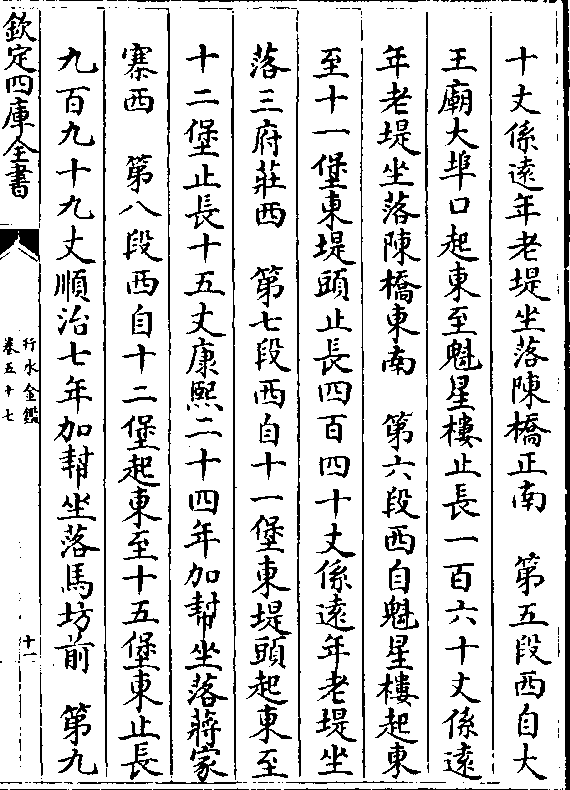 十丈係遠年老堤坐落陳橋正南　第五段西自大
王廟大埠口起東至魁星樓止長一百六十丈係遠
年老堤坐落陳橋東南　第六段西自魁星樓起東
至十一堡東堤頭止長四百四十丈係遠年老堤坐
落三府莊西　第七段西自十一堡東堤頭起東至
十二堡止長十五丈康熙二十四年加幫坐落蔣家
寨西　第八段西自十二堡起東至十五堡東止長
九百九十九丈順治七年加幫坐落馬坊前　第九
欽定四庫全書
行水金鑑
卷五十七
十一